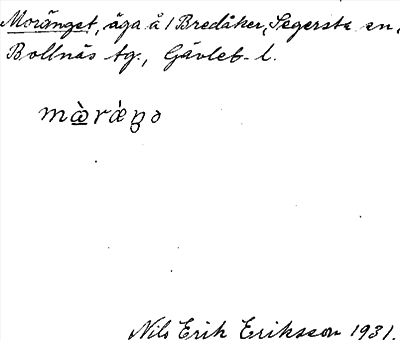 Moränget, äga å 1 Bredåker, Segersta sn,
Bollnäs tg., Gävleb. l.
mὰ̱ràŋə
Nils Erik Eriksson 1931.